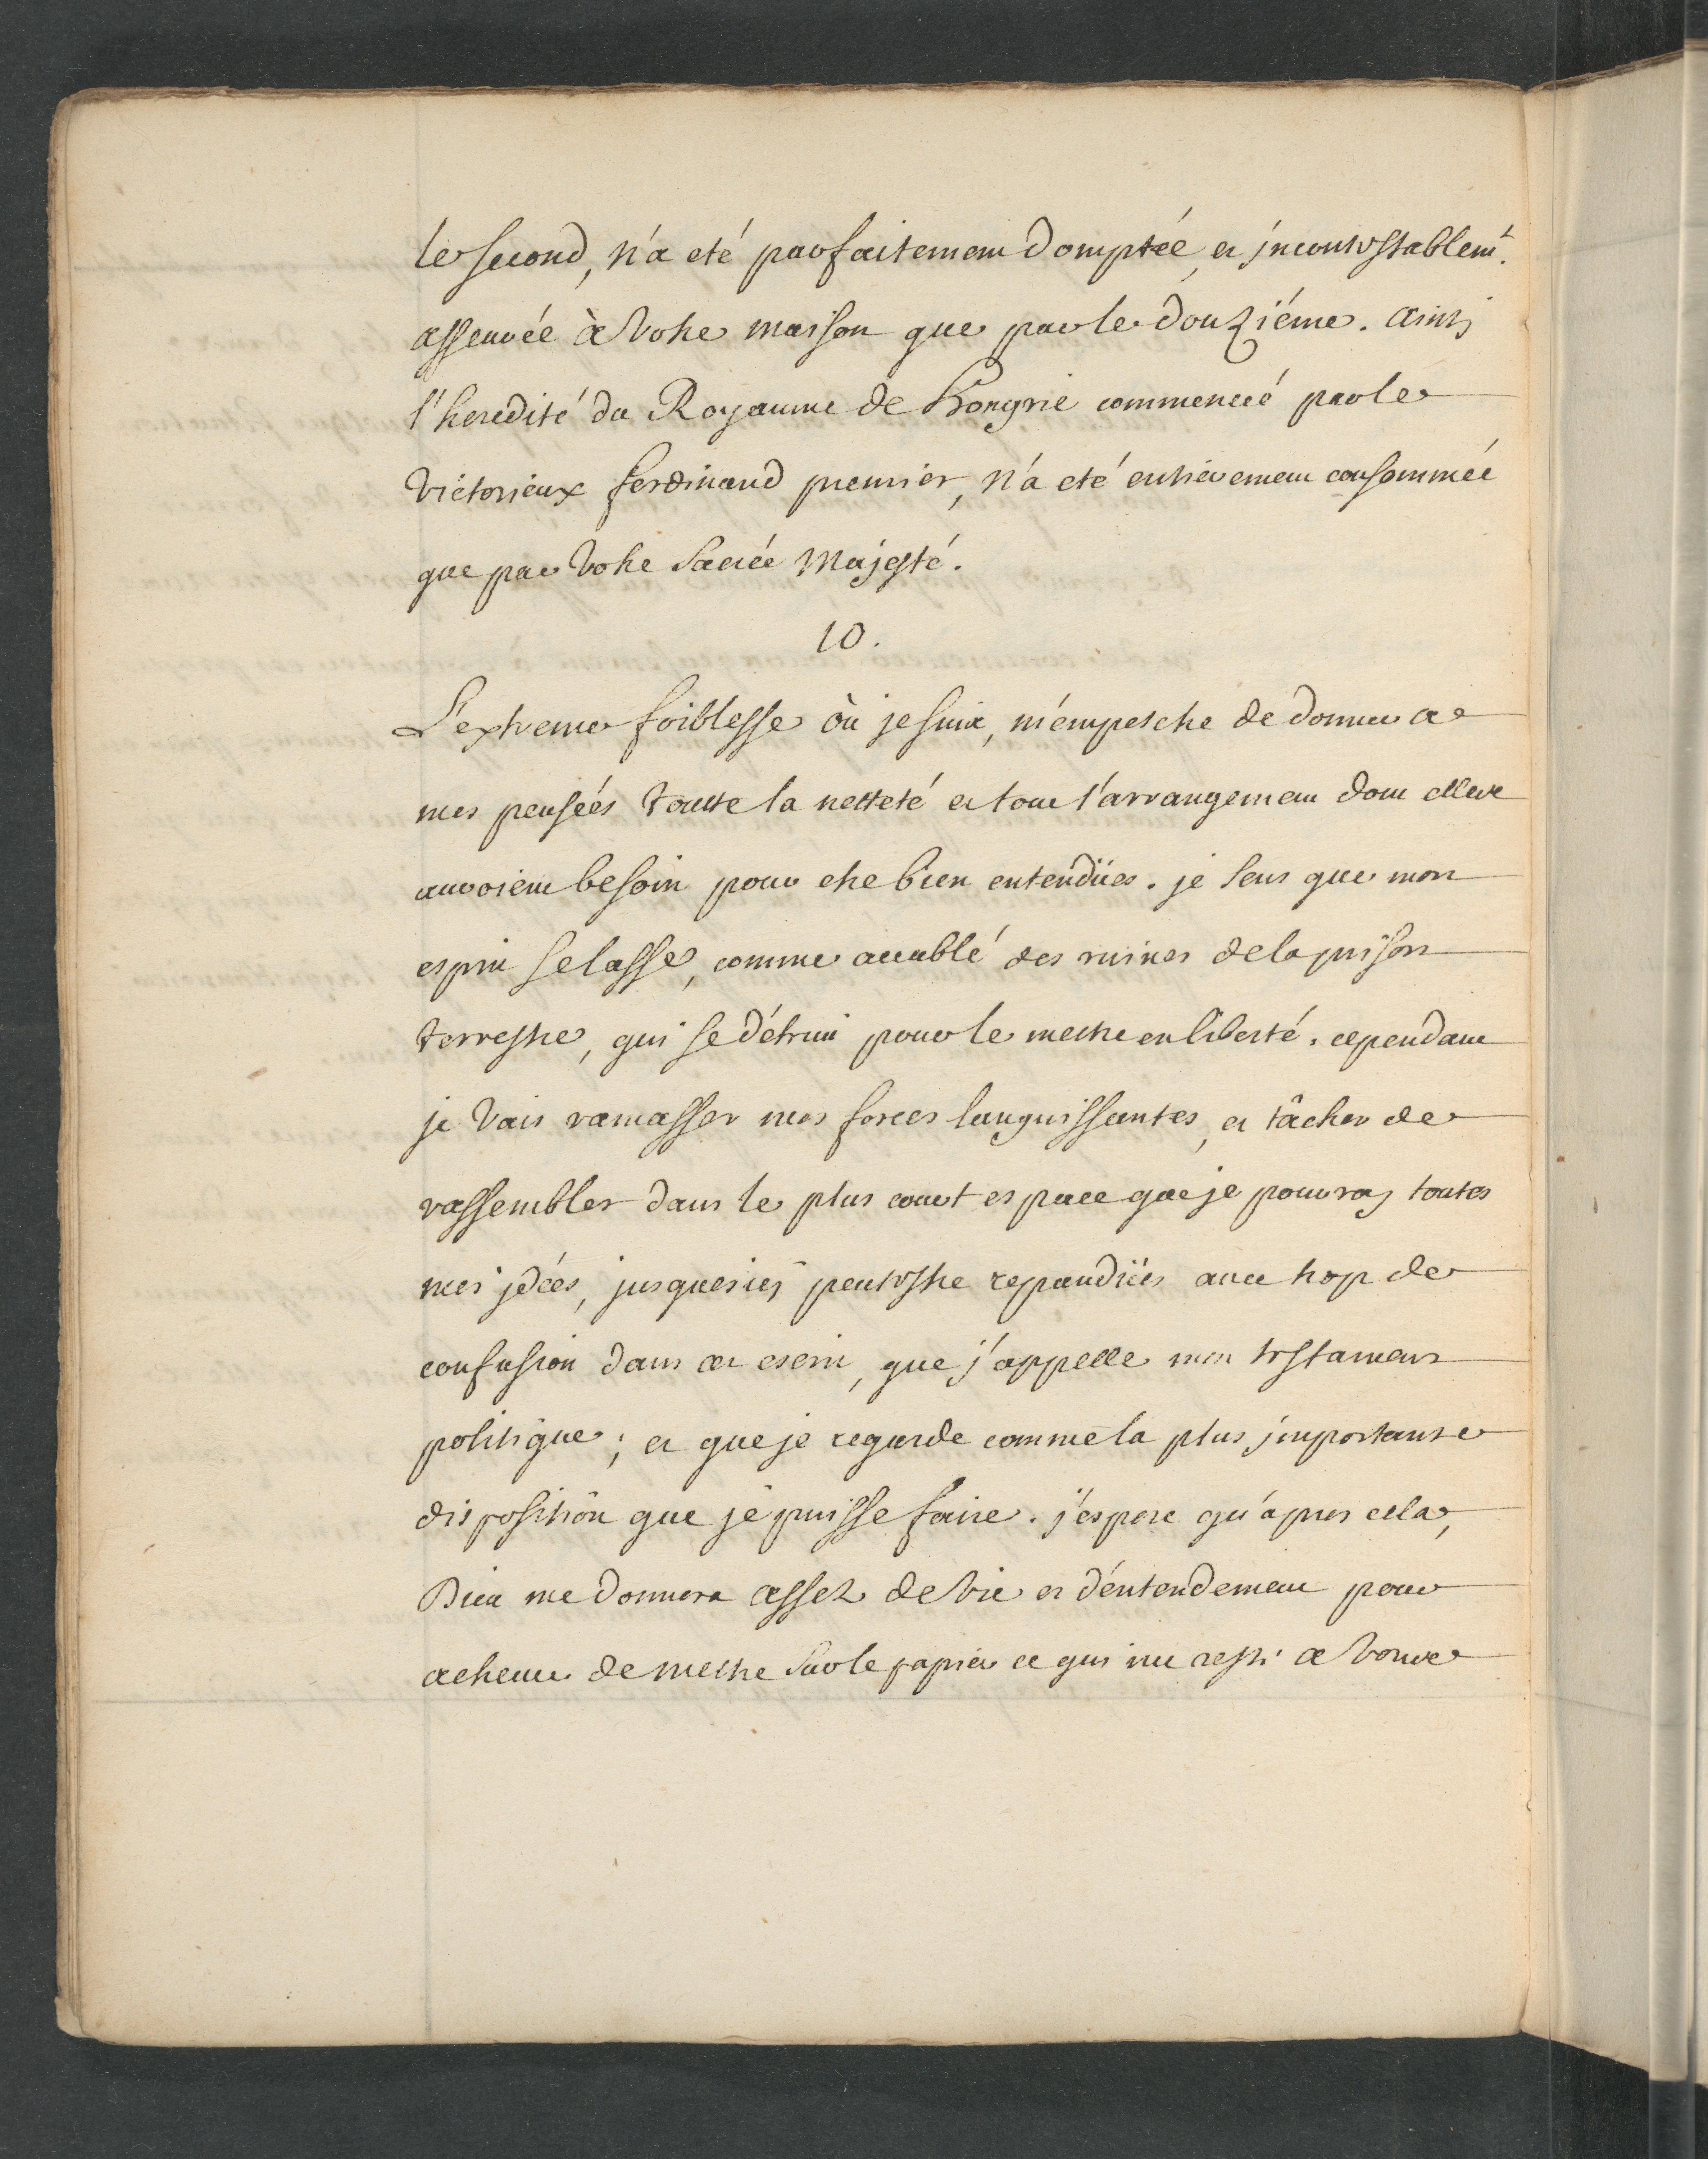 le second, n'a eté parfaitement domptée, et jncontestablemt.
asseurée à votre maison que par le douziéme. ainsj
l'heredité du Royaume de Hongrie commencé par le
victorieux ferdinand premier, n'a eté entierement consommée
que par votre Sacrée Majesté.
10.
L'extreme foiblesse où je suis, m'empesche de donner a
mes pensées toutte la netteté et tout l'arrangement dont elles
auroient besoin pour etre bien entendües. je sens que mon
esprit se lasse, comme accablé des ruines de la prison
terrestre, qui se détruit pour le mettre en liberté. cependant
je vais ramasser mes forces languissantes, et tâcher de
rassembler dans le plus court espace que je pourray toutes
mes jdées, jusques icy peutestre repandües avec trop de
confusion dans cet escrit, que j'appelle mon testament
politique; et que je regarde comme la plus jmportante
disposition que je puisse faire. j'espere qu'apres cela,
Dieu me donnera assez de vie et d'entendement pour
achever de mettre sur le papier ce qui me reste a vous